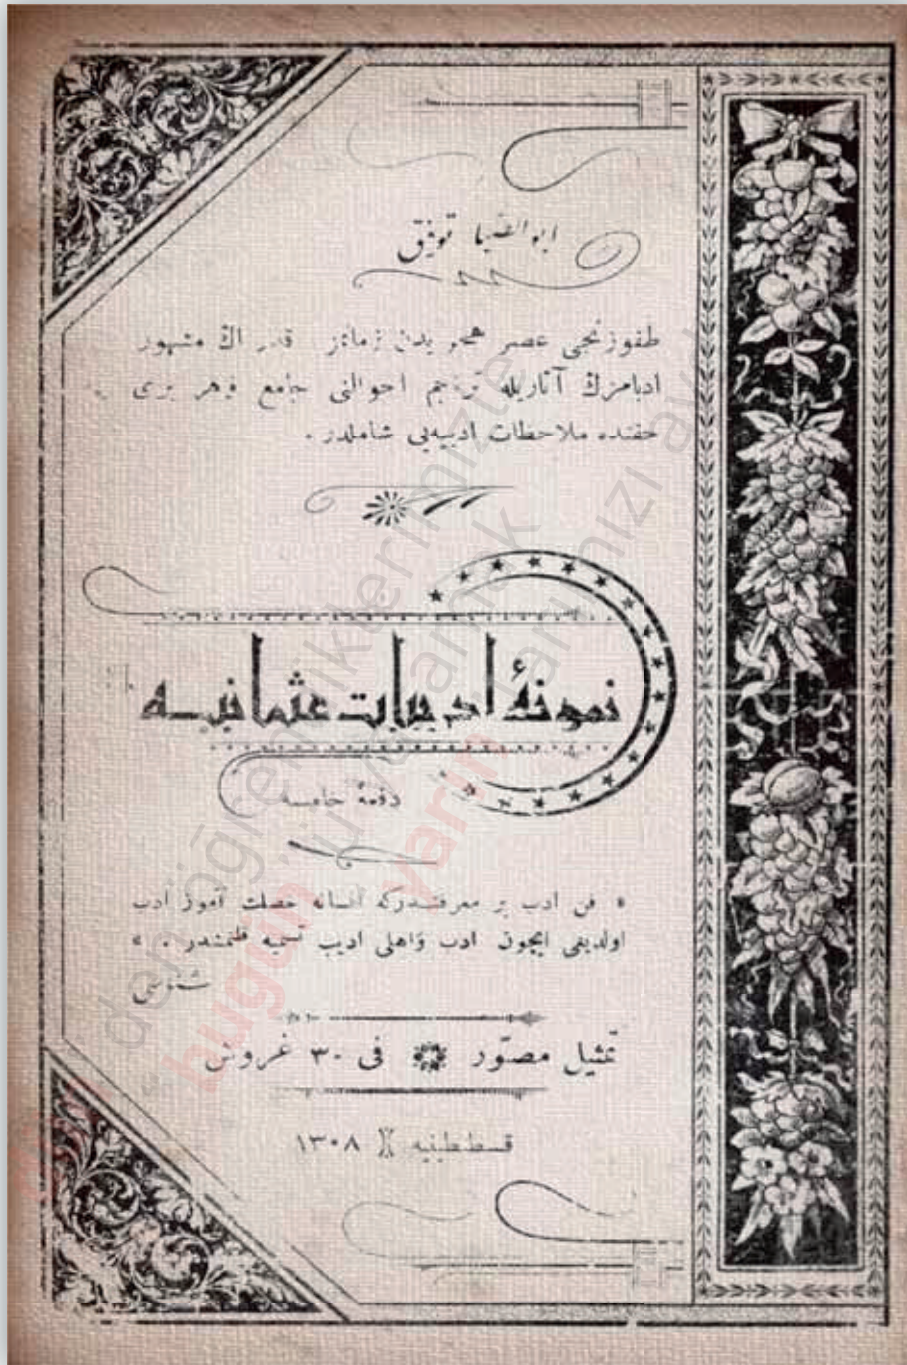 ابوالضيا توفيق
طقوزنجى عصر هجريدن زمانمز قدر اڭ مشهور
ادبامزڭ آثاريله تراجم احوالنى جامع وهر برى
حقنده ملاحظات ادبيه‌يى شاملدر .
نمونهٔ ادبيات عثمانيه
دفعهٔ خامسه
« فن ادب بر معرفتدركه انسانه خصلت آموز ادب
اولديغى ايچون ادب واهلى اديب تسميه قلنمشدر . »
شناسى
تمثيل مصوّر فى ٣٠ غروش
قسطنطينيه ١٣٠٨
den öğren iklerimizle
bugün yarın